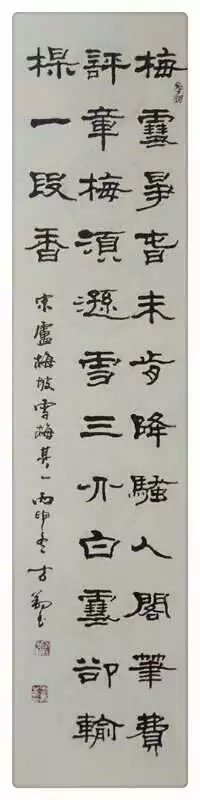 梅雪爭春未肯降騷人閣筆費
評章梅須遜雪三分白雪卻輸
楳一段香
宋盧梅坡雪梅其一丙申冬